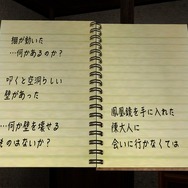 棚が動いた
…何かあるのか？
叩くと空洞らしい
壁があった
…何か壁を壊せる
ものはないか？
鳳凰鏡を手に入れた
陳大人に
会いに行かなくては